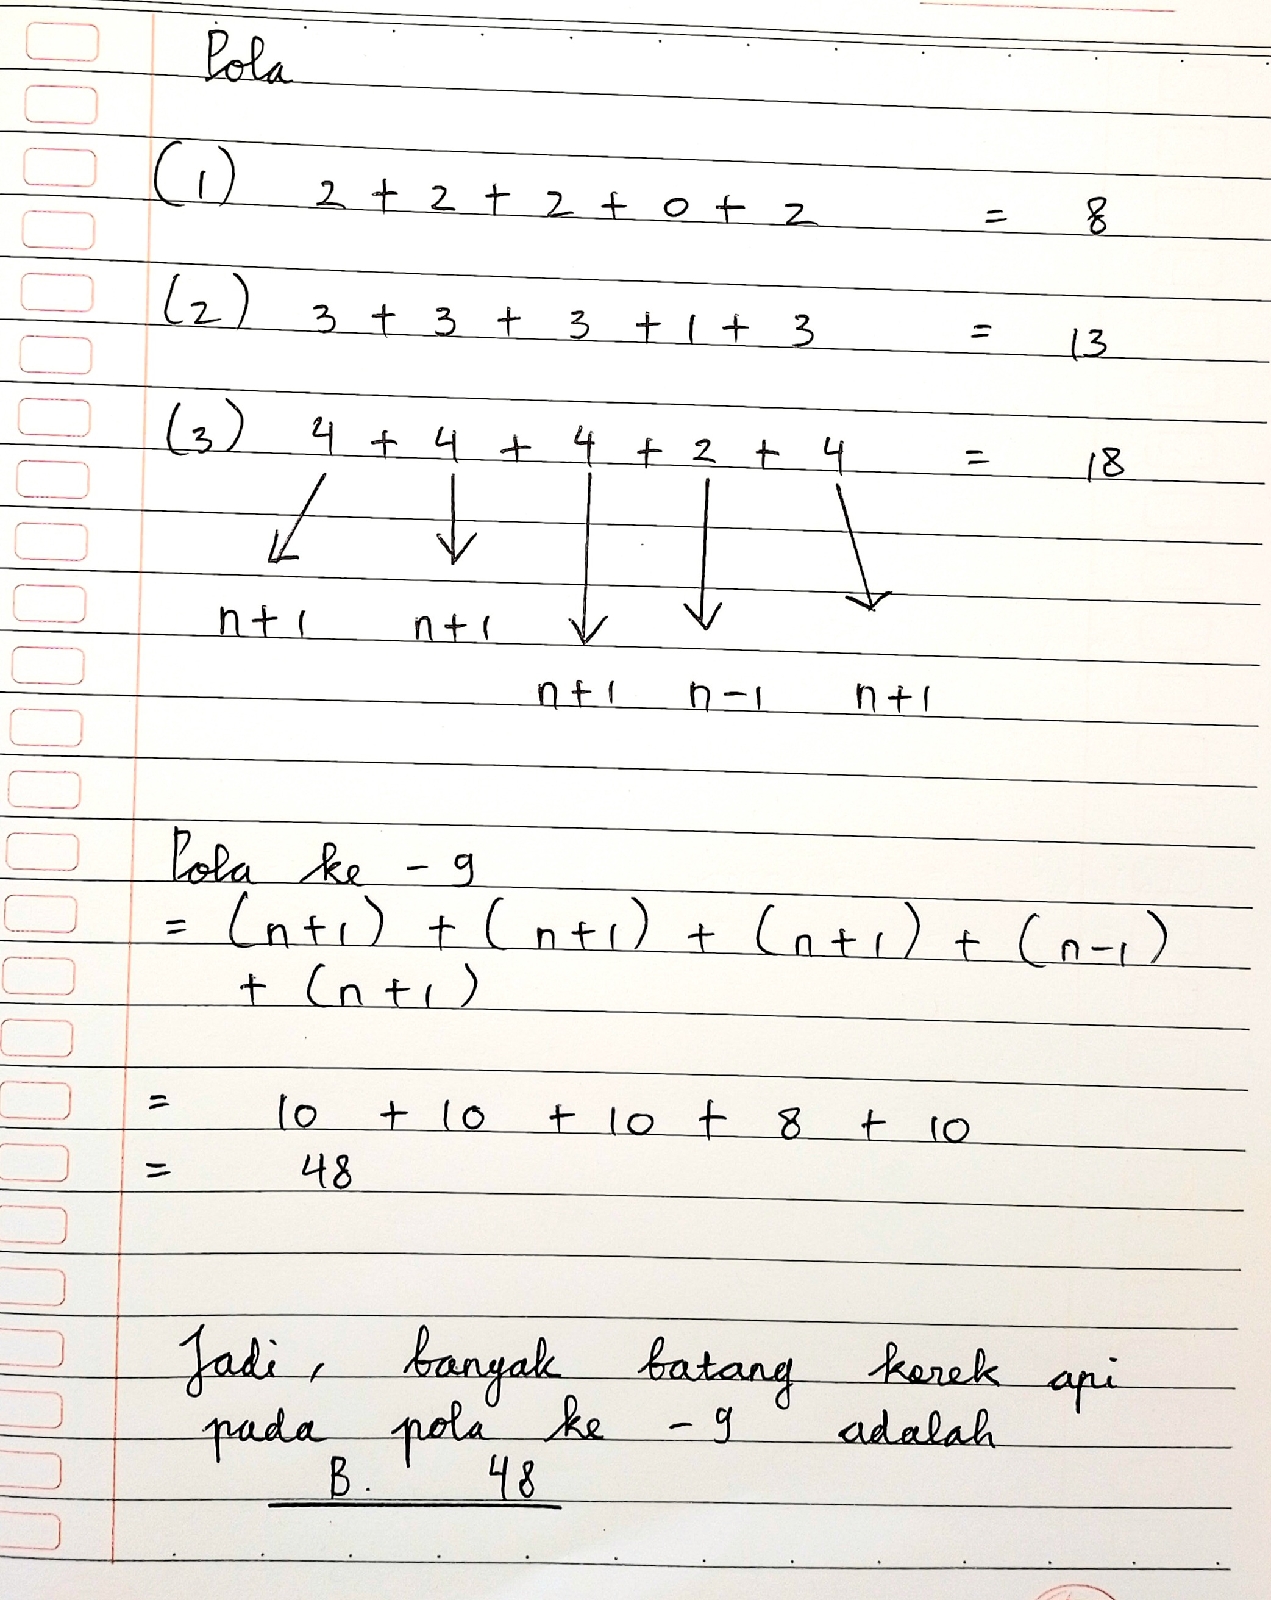 Pola
(1) 2 + 2 + 2 + 0 + 2 = 8
(2) 3 + 3 + 3 + 1 + 3 = 13
(3) 4 + 4 + 4 + 2 + 4 = 18
n+1 n+1
n+1 n-1 n+1
Pola ke - 9
= (n+1) + (n+1) + (n+1) + (n-1)
+ (n+1)
= 10 + 10 + 10 + 8 + 10
= 48
Jadi, banyak batang korek api
pada pola ke - 9 adalah
B. 48